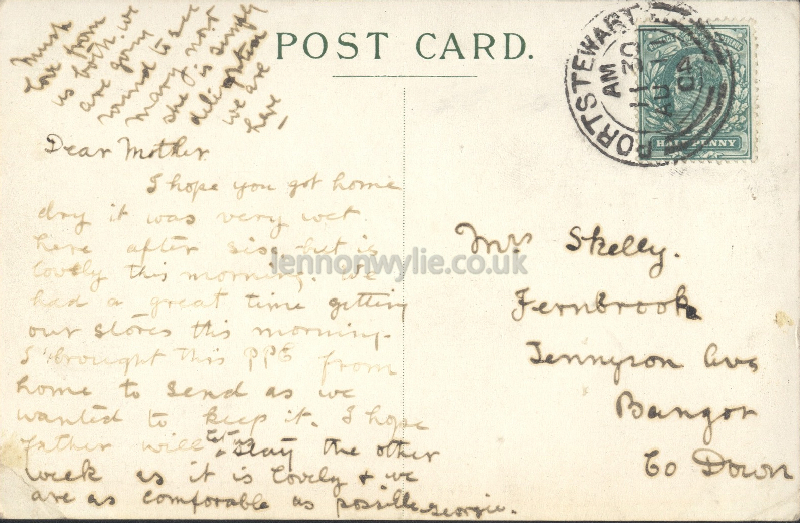 Much
love from
us both. we
are going
round to see
Mary now
she is simply
delighted
we are
here
POST CARD.
PORTSTEWART
AM
11
AU
HALFPENNY
Dear Mother
I hope you got home
dry it was very wet
here after six, but is
lovely this morning. We
had a great time getting
our stores this morning.
I brought this PPC from
home to send as we
wanted to keep it. I hope
father will let us stay the other
week as it is lovely & we
are as comforable as possible Georgie.
lennonwylie.co.uk
Mrs Skelly.
Fernbrook
Tennyson Ave
Bangor
Co Down